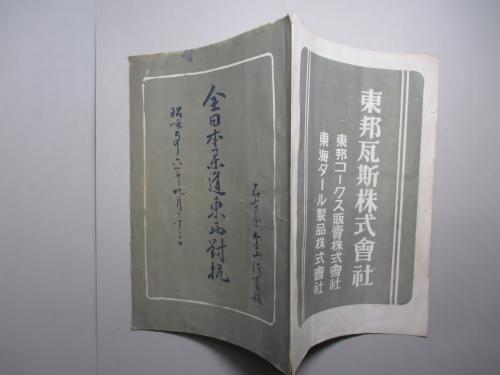 東邦瓦斯株式會社
東邦コークス販賣株式會社
東海タール製品株式會社
全日本柔道東西對抗
昭和十六年九月二十三日